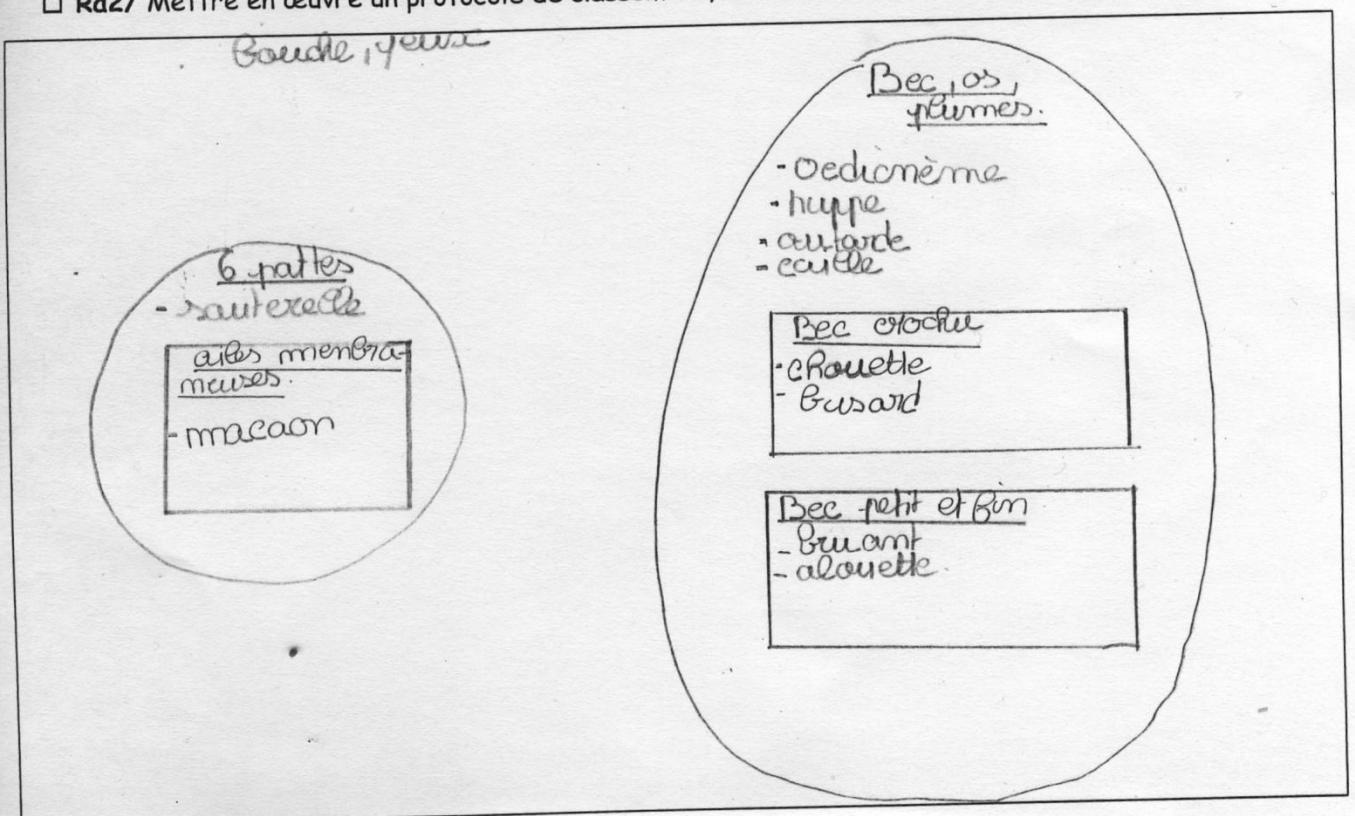 ☐ Ra2/ Mettre en œuvre un protocole de
Bouche, yeux
6 pattes
- sauterelle
ailes menbra-
neuses.
- macaon
Bec, os,
plumes.
- oedicnème
- huppe
- outarde
- caille
Bec crochu
- chouette
- busard
Bec petit et fin
- bruant
- alouette.